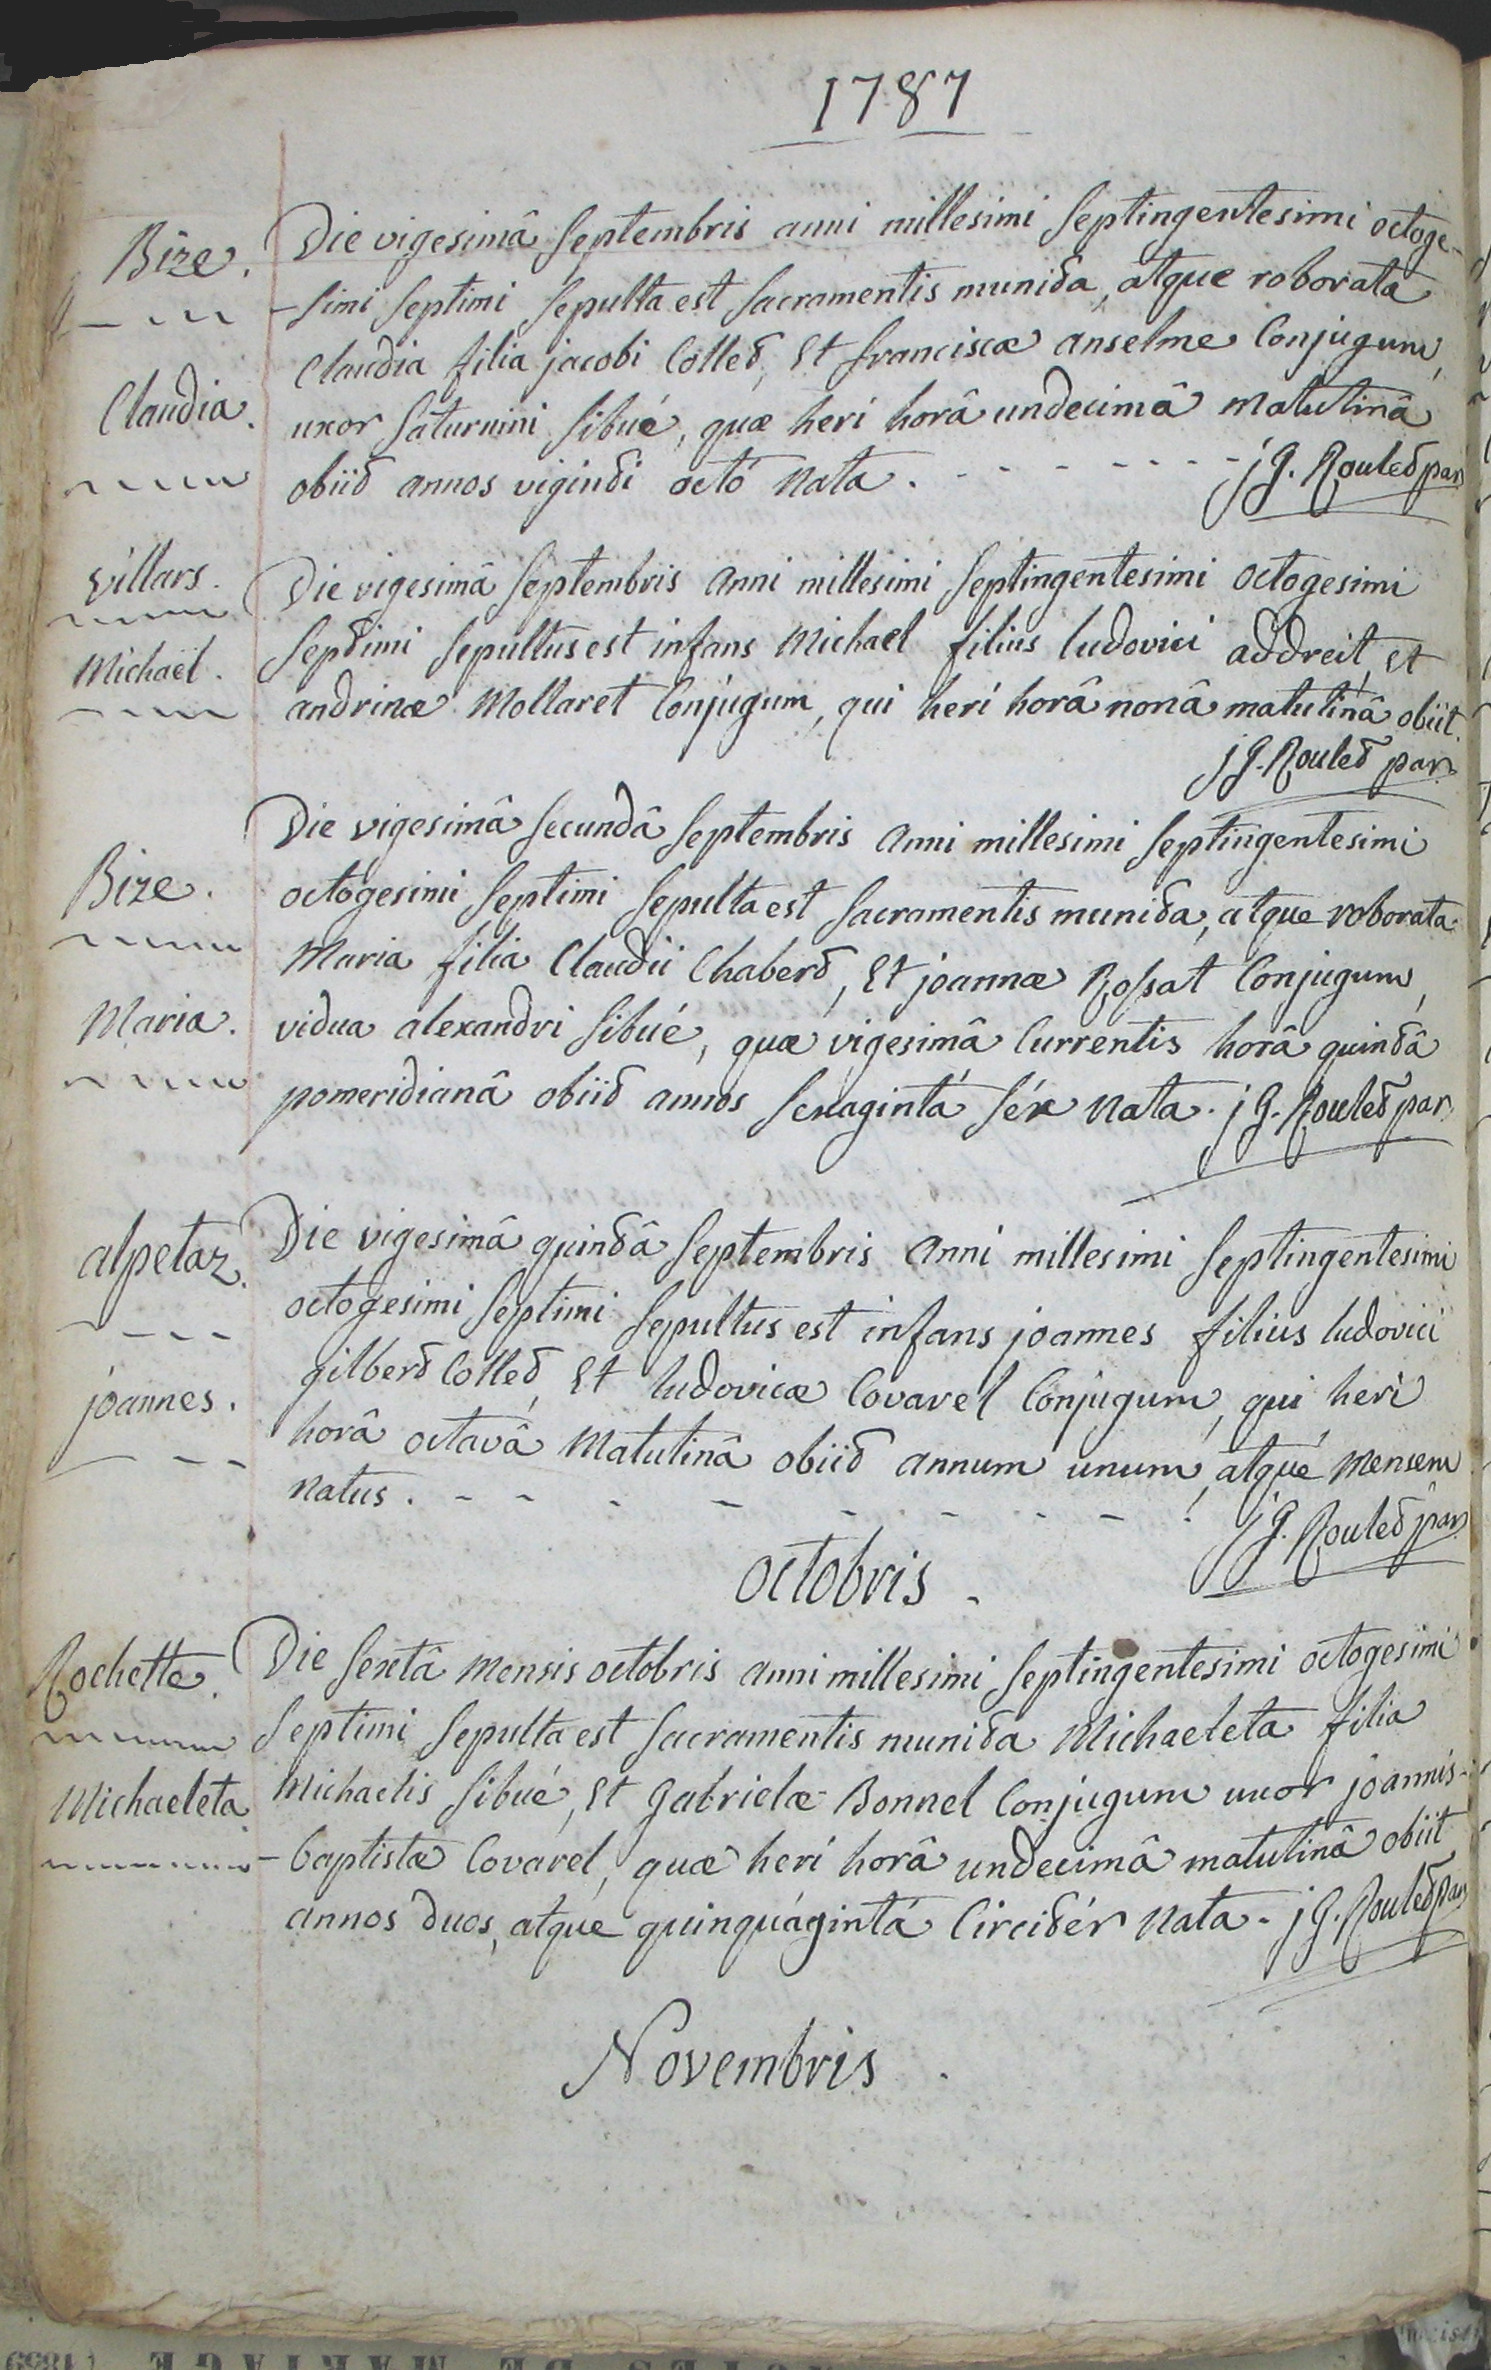 1787
Bize.
Die vigesimâ Septembris anni millesimi Septingentesimi octoge-
-simi septimi sepulta est sacramentis munita, atque roborata
Claudia.
Claudia filia jacobi Collet, Et franciscæ anselme Conjugum,
uxor Saturnini Sibué, quæ heri horâ undecimâ matutinâ
obiit annos viginti octó nata. - - - - - - - j G. Roulet par
villars.
Die vigesimâ Septembris anni millesimi Septingentesimi octogesimi
Michaël.
Septimi sepultus est infans Michaël filius ludovici addreit, et
andrinæ Mollaret Conjugum, qui heri horâ nonâ matutinâ obiit.
j G. Roulet par
Die vigesimâ secundâ Septembris anni millesimi Septingentesimi
Bize.
octogesimi Septimi sepulta est sacramentis munita, atque roborata
Maria filia Claudii Chabert, Et joannæ Rossat Conjugum,
Maria.
vidua alexandri Sibué, quæ vigesimâ Currentis horâ quintâ
pomeridianâ obiit annos sexagintá séx nata. j G. Roulet par
alpetaz.
Die vigesimâ quintâ Septembris anni millesimi Septingentesimi
octogesimi Septimi sepultus est infans joannes filius ludovici
joannes.
gilbert Collet, Et ludovicæ Covarel Conjugum, qui heri
horâ octavâ Matutinâ obiit annum unum, atqué mensem
natus. - - - - - - - - - j G. Roulet par
octobris.
Rochette.
Die sextâ mensis octobris anni millesimi Septingentesimi octogesimi
Septimi sepulta est sacramentis munita Michaeleta filia
Michaeleta.
Michaelis Sibué, Et gabrielæ Bonnel Conjugum uxor joannis-
-baptistæ Covarel, quæ heri horâ undecimâ matutinâ obiit
annos duos, atque quinquágintá Circitér nata. j G. Roulet par
Novembris.
ACTES DE MARIAGE (1859